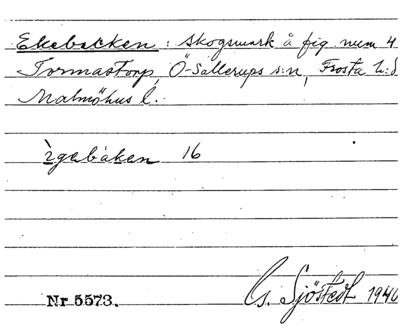 Ekebacken: Skogsmark å fig. num 4
Tormastorp, Ö-Sallerups s:n, Frosta h:d
Malmöhus l.
ìgebàken 16
Nr 5573.
G. Sjöstedt 1946